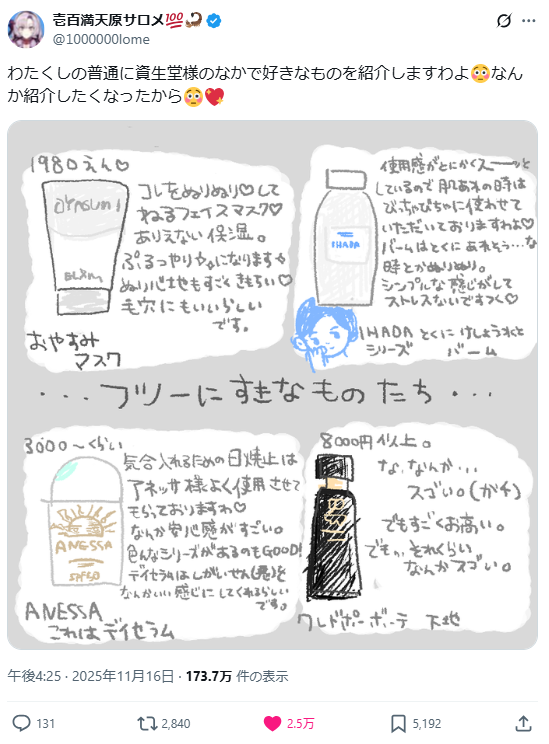 壱百満天原サロメ💯🦂
@1000000lome
わたくしの普通に資生堂様のなかで好きなものを紹介しますわよ😳なん
か紹介したくなったから😳💖
1980えん♡
OYASUMI
ELIXIR
コレをぬりぬり♡して
ねるフェイスマスク♡
ありえない保湿。
ぷるっやりゃぁになりますゃ
ぬりバ世もすごくきもちい♡
毛穴にもいいらしい
です。
おやすみ
マスク
使用感がとにかくスーーッと
しているので肌あれの時は
びちゃびちゃに使わせて
いただいておりますわよ♡
バームはとくにあれそう…な
時とかぬりぬり。
シンプルな感じがして
ストレスないですっ♡
IHADA
IHADA とくに けしょうすいと
シリーズ バーム
...フツーにすきなものたち...
3000～くらい
気合入れるための日焼止は
アネッサ様よく使用させて
もらっておりますわ♡
なんか安心感がすごい。
色んなシリーズがあるのもGOOD!
デイセラムはしがいせん(光)を
なんかいい感じにしてくれるらしい
です。
ANESSA
SPF50
ANESSA
これはデイセラム
8000円以上。
な,なんか...
スゴい。(ガチ)
でもすごくお高い。
でも,,それくらい
なんかスゴい。
クレドポーボーテ 下地
午後4:25 · 2025年11月16日 · 173.7万 件の表示
131
2,840
2.5万
5,192